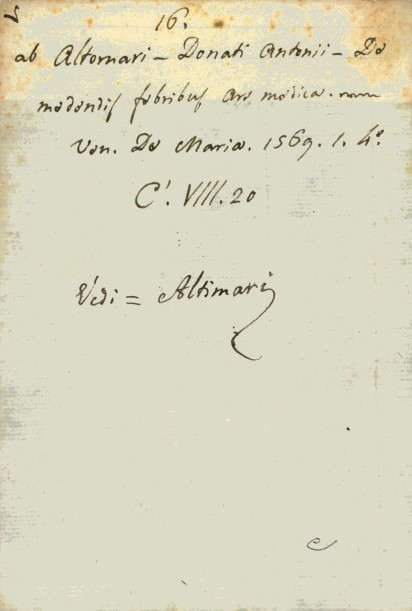 16.
ab Altomari - Donati Antonii - De
medendis febribus Ars medica.
Ven. De Maria. 1569. 1. 4.º
C'. VIII. 20
Vedi = Altimari